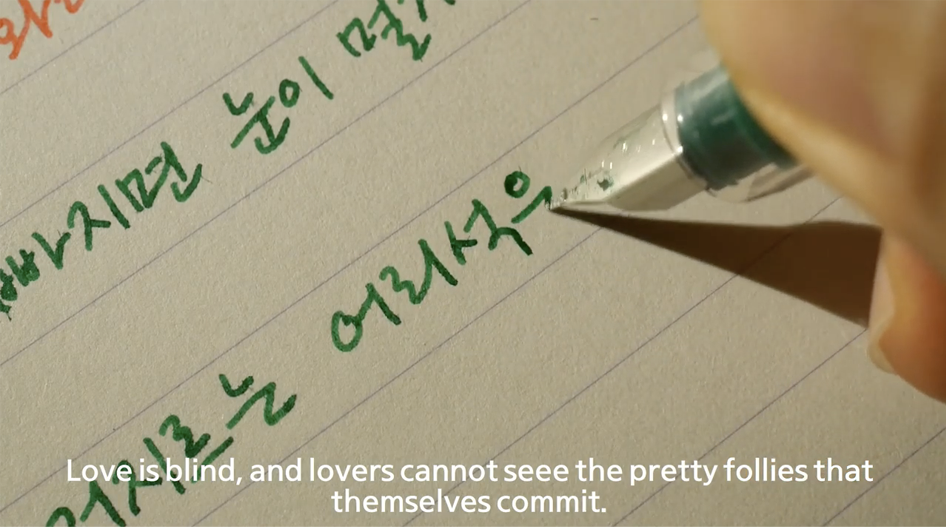 빠지면 눈이 멀
저지르는 어리석으
Love is blind, and lovers cannot seee the pretty follies that
themselves commit.